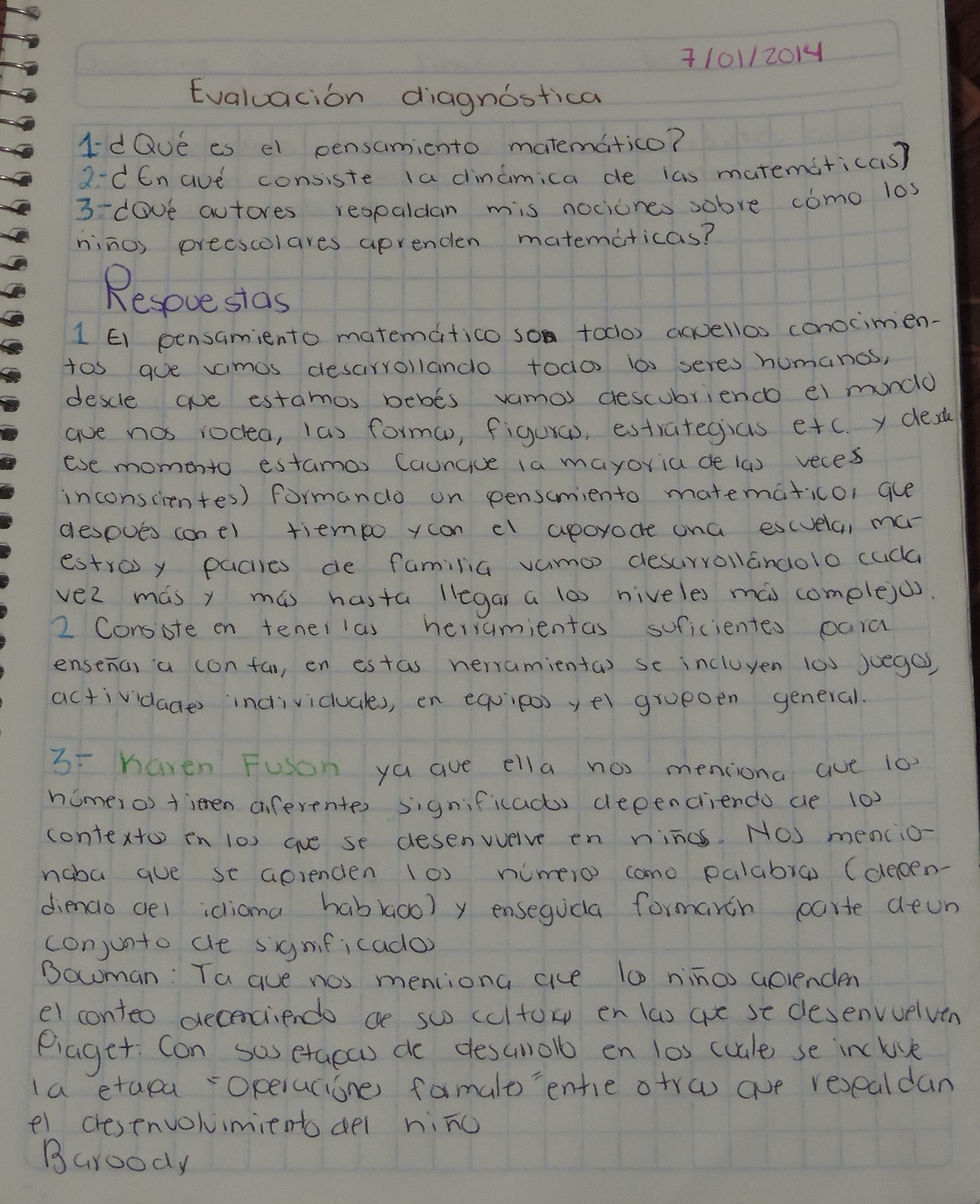 7/01/2014
Evaluación diagnóstica
1-¿Qué es el pensamiento matemático?
2-¿En qué consiste la dinámica de las matemáticas?
3-¿Qué autores respaldan mis nociones sobre cómo los
niños preescolares aprenden matemáticas?
Respuestas
1 El pensamiento matemático son todos aquellos conocimien-
tos que vamos desarrollando todos los seres humanos,
desde que estamos bebés vamos descubriendo el mundo
que nos rodea, las formas, figuras, estrategias etc. y desde
ese momento estamos (aunque la mayoria de las veces
inconscientes) formando un pensamiento matemático, que
después con el tiempo y con el apoyo de una escuela, ma-
estros y padres de familia vamos desarrollándolo cada
vez más y más hasta llegar a los niveles más complejos.
2 Consiste en tener las herramientas suficientes para
enseñar a contar, en estas herramientas se incluyen los juegos,
actividades individuales, en equipos y el grupo en general.
3- Karen Fuson ya que ella nos menciona que los
números tienen diferentes significados dependiendo de los
contextos en los que se desenvuelve en niños. Nos mencio-
naba que se aprenden los números como palabras (depen-
diendo del idioma hablado) y enseguida formarón parte de un
conjunto de significados
Bowman: Ya que nos menciona que los niños aprenden
el conteo dependiendo de sus culturas en las que se desenvuelven
Piaget: Con sus etapas de desarrollo en los cuales se incluye
la etapa "Operaciónes formales" entre otras que respaldan
el desenvolvimiento del niño
Baroody